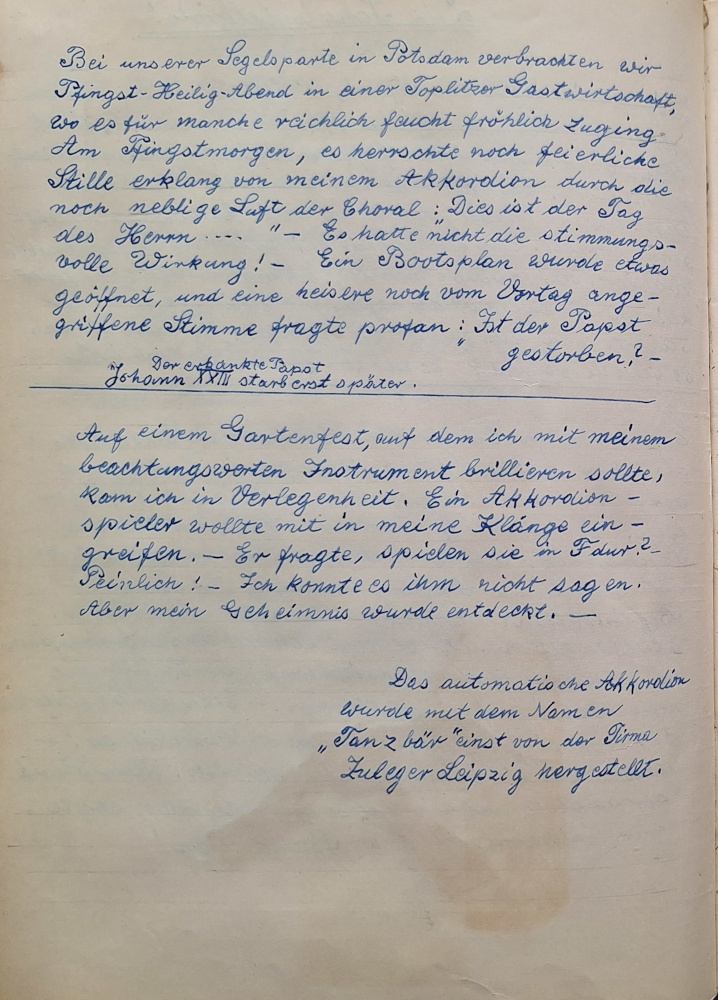 Bei unserer Segelsparte in Potsdam verbrachten wir
Pfingst-Heilig-Abend in einer Töplitzer Gastwirtschaft,
wo es für manche reichlich feucht fröhlich zuging.
Am Pfingstmorgen, es herrschte noch feierliche
Stille erklang von meinem Akkordion durch die
noch neblige Luft der Choral: „Dies ist der Tag
des Herrn .... " – Es hatte nicht die stimmungs-
volle Wirkung! – Ein Bootsplan wurde etwas
geöffnet, und eine heisere noch vom Vortag ange-
griffene Stimme fragte profan: „Ist der Papst
gestorben?" –
Der erkankte Papst
Johann XXIII starb erst später.
Auf einem Gartenfest, auf dem ich mit meinem
beachtungswerten Instrument brillieren sollte,
kam ich in Verlegenheit. Ein Akkordion-
spieler wollte mit in meine Klänge ein-
greifen. – Er fragte, spielen sie in F dur? –
Peinlich! – Ich konnte es ihm nicht sagen.
Aber mein Geheimnis wurde entdeckt. —
Das automatische Akkordion
wurde mit dem Namen
„Tanzbär" einst von der Firma
Zuleger Leipzig hergestellt.